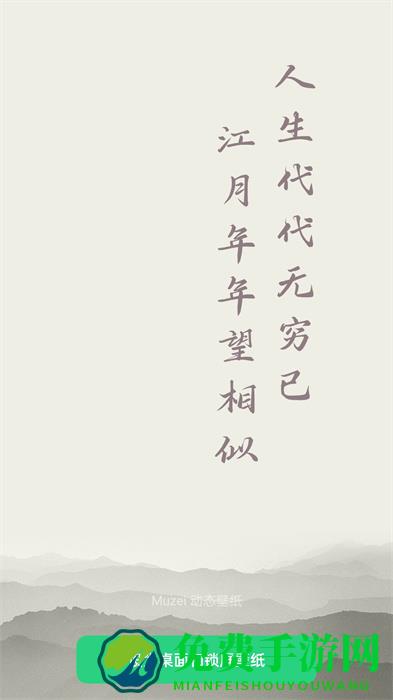 人生代代无穷已
江月年年望相似
Muzei 动态壁纸
桌面
锁屏壁纸
免费手游网
MIANFEISHOUYOUWANG